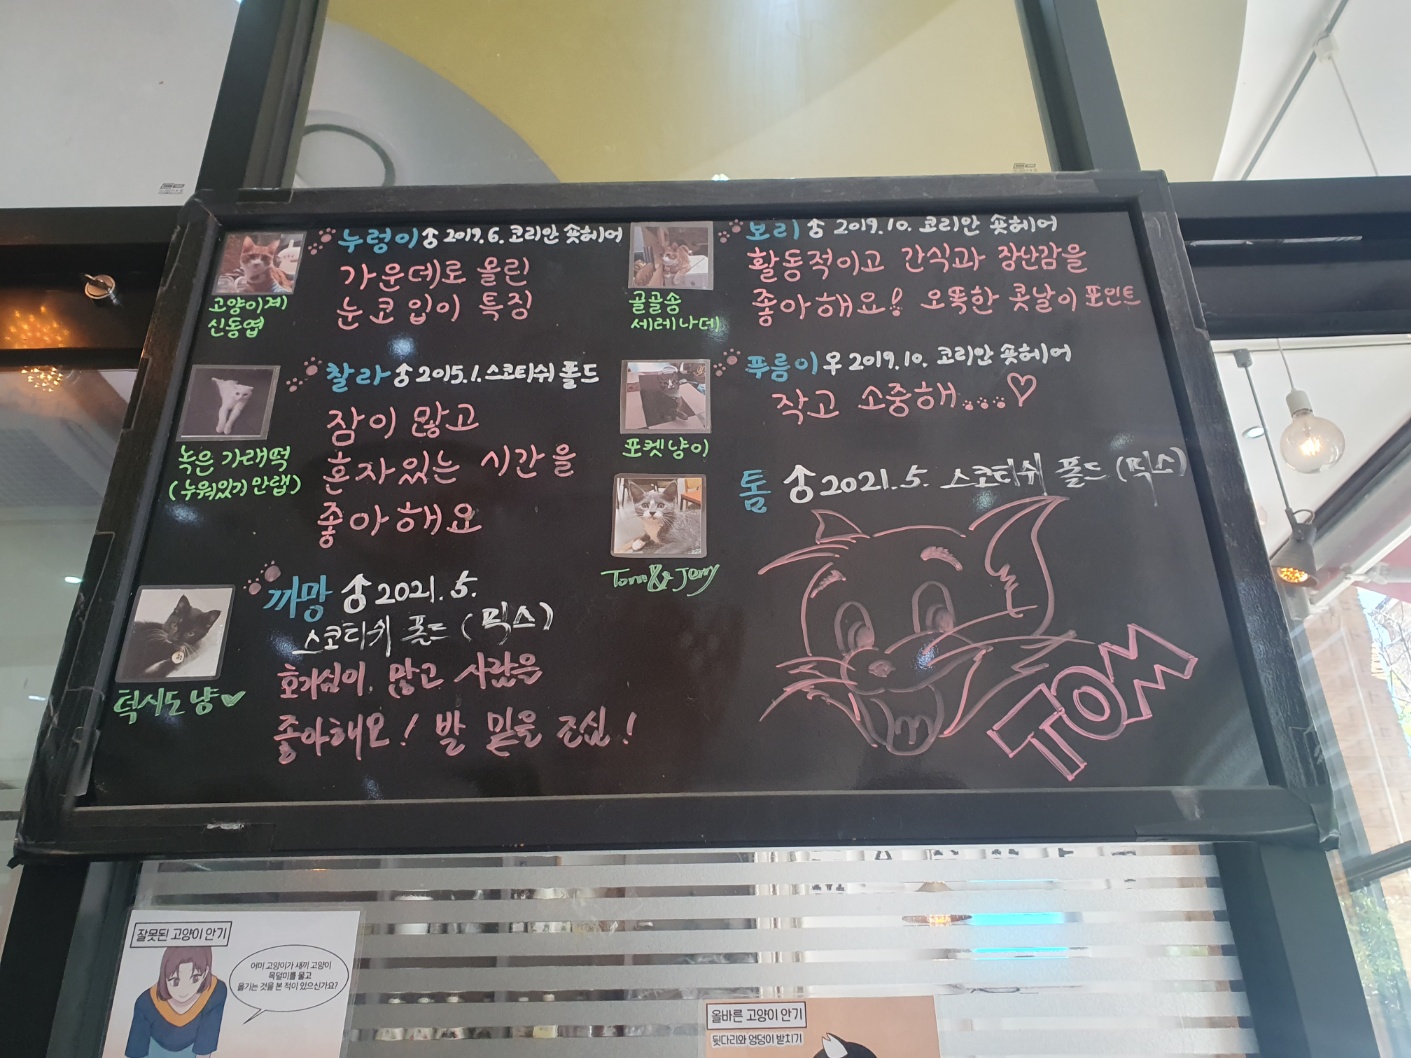 누렁이 ♂ 2019.6. 코리안 숏헤어
가운데로 올린
눈코입이 특징
고양이계
신동엽
찰라 ♂ 2015.1. 스코티쉬 폴드
잠이 많고
혼자있는 시간을
좋아해요
녹은 가래떡
(누워있기 만랩)
까망 ♂ 2021.5.
스코티쉬 폴드 (믹스)
호기심이 많고 사람을
좋아해요! 발 밑을 조심!
턱시도 냥♥
보리 ♂ 2019.10. 코리안 숏헤어
활동적이고 간식과 장난감을
좋아해요! 오똑한 콧날이 포인트
골골송
세레나데
푸름이 우 2019.10. 코리안 숏헤어
작고 소중해...♡
포켓냥이
톰 ♂ 2021.5. 스코티쉬 폴드 (믹스)
Tom & Jerry
TOM
잘못된 고양이 안기
어미 고양이가 새끼 고양이
목덜미를 물고
옮기는 것을 본 적이 있으신가요?
올바른 고양이 안기
뒷다리와 엉덩이 받치기